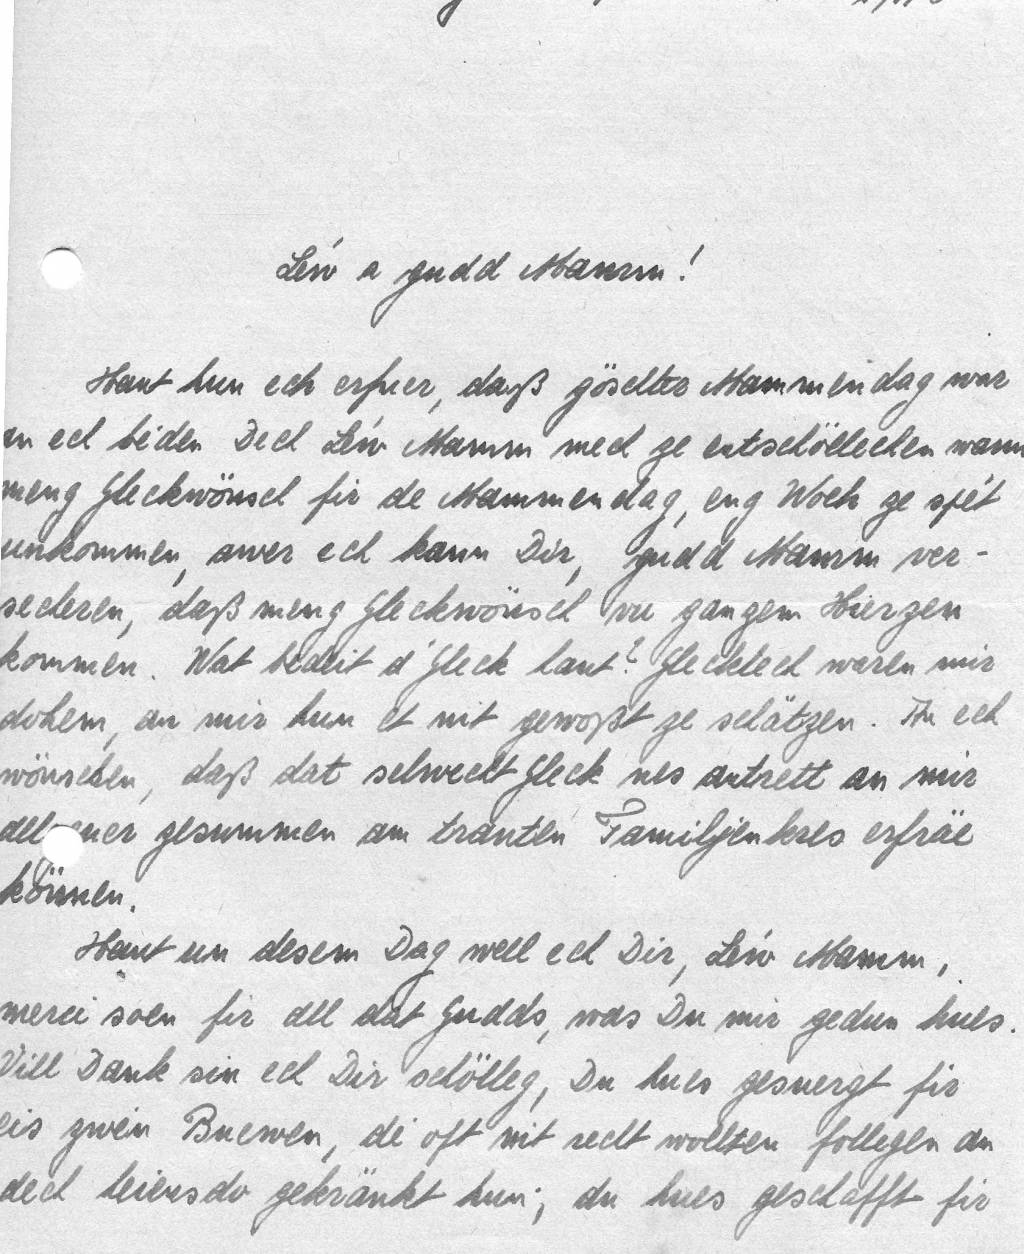 Léiw a gudd Mamm!
Haut hun ech erfuer, daß göschter Mammendag war
an ech bieden Dech Léiw Mamm mech ze entschöllechen wann
meng Gleckwönsch fir de Mammendag, eng Woch ze spét
unkommen, awer ech kann Dir, gudd Mamm ver-
secheren, daß meng Gleckwönsch vu ganzem Hierzen
kommen. Wat bedeit d'Gleck laut? Glecklech waren mir
dohem, an mir hun et nit gewoßt ze schätzen. An ech
wönschen, daß dat selwecht Gleck nes antrett an mir
all gesummen am trauten Familjenkres erfräe
können.
Haut un desem Dag well ech Dir, Léiw Mamm,
merci soen fir all dat Gudds, was Du mir gedun hues.
Vill Dank sin ech Dir schölleg, Du hues gesuergt fir
eis zwéin Buewen, déi oft nit recht wollten follegen an
dech heiensdo gekränkt hun; du hues geschafft fir